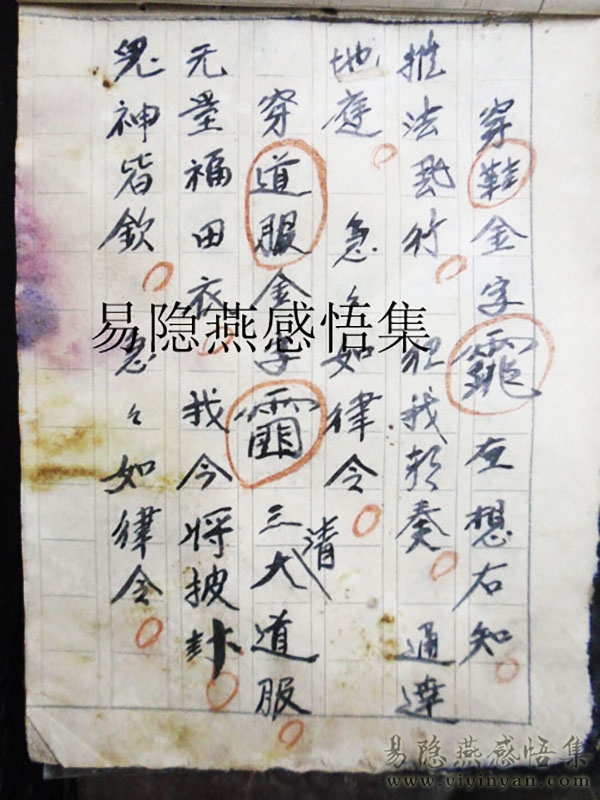 穿鞋金字左想右知
推法行我朝奏通達
地庭急々如律令
穿道服金字三清大道服
元量福田衣我今将披卦
鬼神皆欽急々如律令
易隐燕感悟集
易隐燕感悟集
www.yiyinyan.com